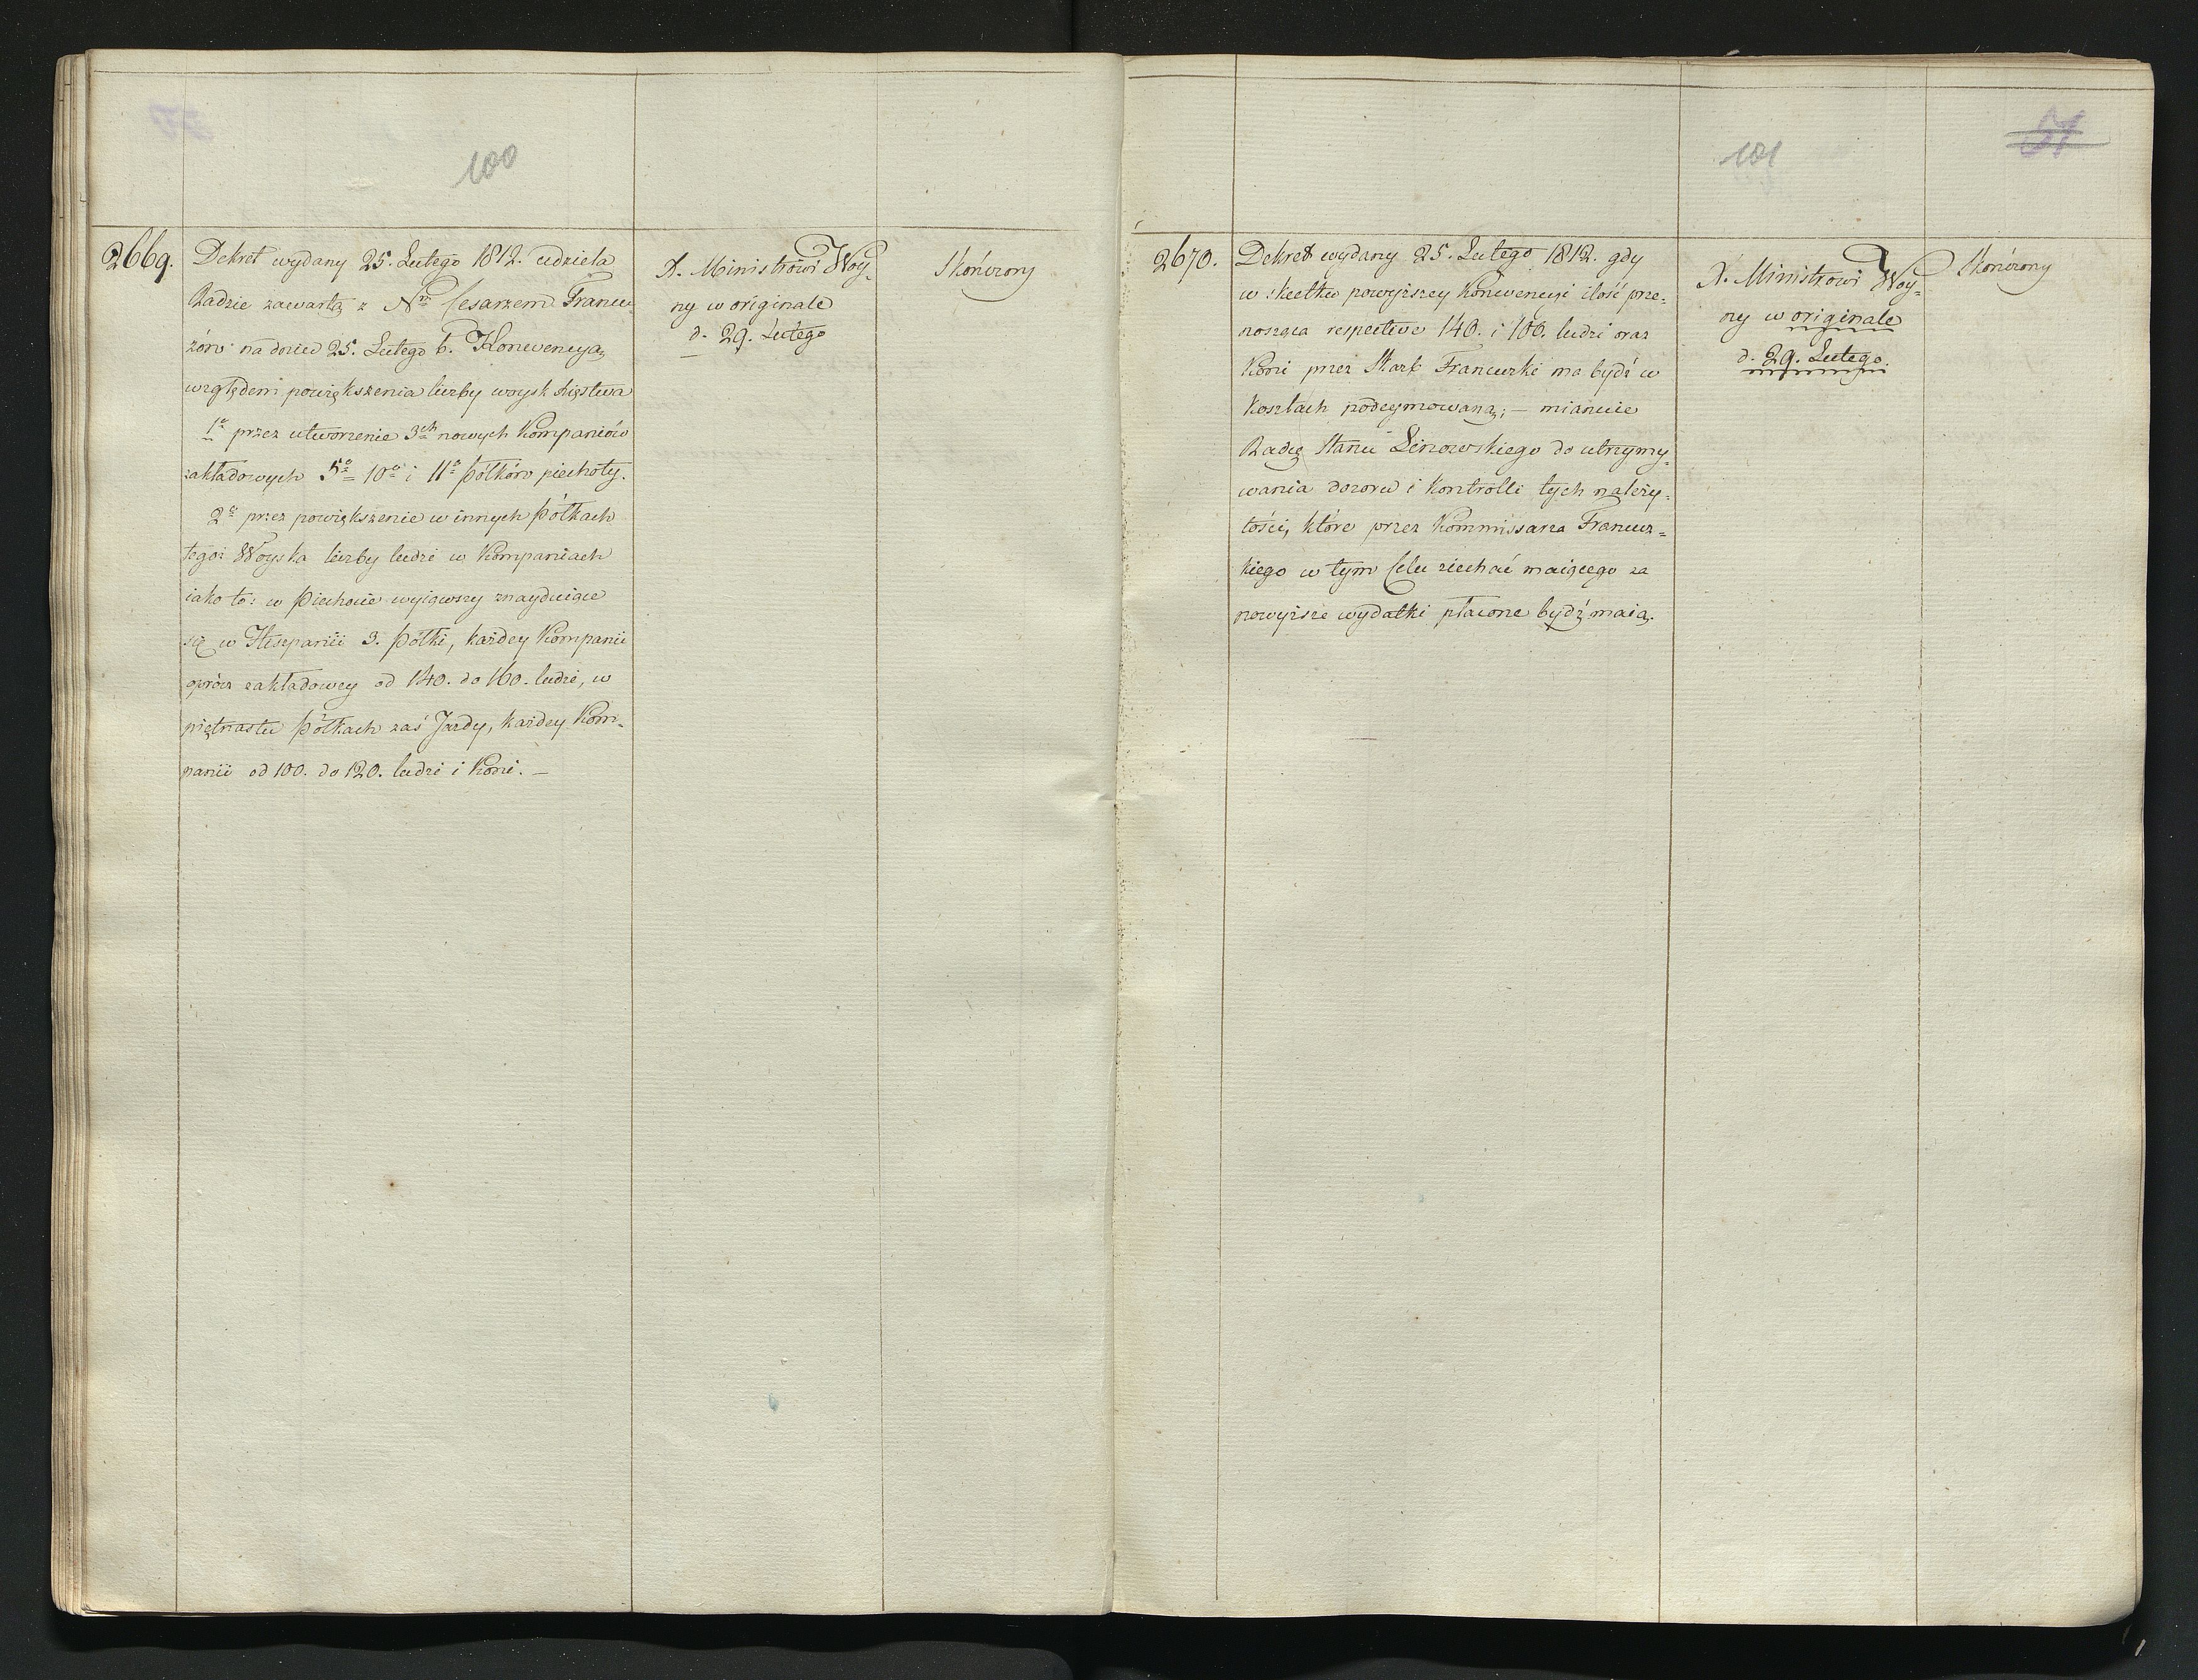 100
2669.
Dekret wydany 25. Lutego 1812. udziela
Radzie zawartą z Nm Cesarzem Francu-
zów na dniu 25. Lutego b. Konwencyą
względem powiększenia liczby woysk Xięstwa
1o przez utworzenie 3ch nowych Kompaniów
zakładowych 5o 10o i 11o Półków piechoty.
2o przez powiększenie w innych Półkach
tegoż Woyska liczby ludzi w Kompaniach
iako to: w Piechocie wyiąwszy znayduiące
się w Hiszpanii 3. Półki, każdey Kompanii
oprócz zakładowey od 140. do 160. ludzi, w
piętnastu Półkach zaś Jazdy, każdey Kom-
panii od 100. do 120. ludzi i Koni. —
X. Ministrowi Woy-
ny w originale
d. 29. Lutego
Skończony
101
51
2670.
Dekret wydany 25. Lutego 1812. gdy
w skutku powyższey Konwencyi ilość prze-
nosząca respective 140. i 100. ludzi oraz
Koni przez Skarb Francuzki ma bydź w
Kosztach podeymowaną; — mianuie
Radcę Stanu Linowskiego do utrzymy-
wania dozoru i Kontrolli tych należy-
tości, które przez Kommissarza Francuz-
kiego w tym Celu ziechać maiącego za
powyższe wydatki płacone bydź maią.
X. Ministrowi Woy-
ny w originale
d. 29. Lutego.
Skończony